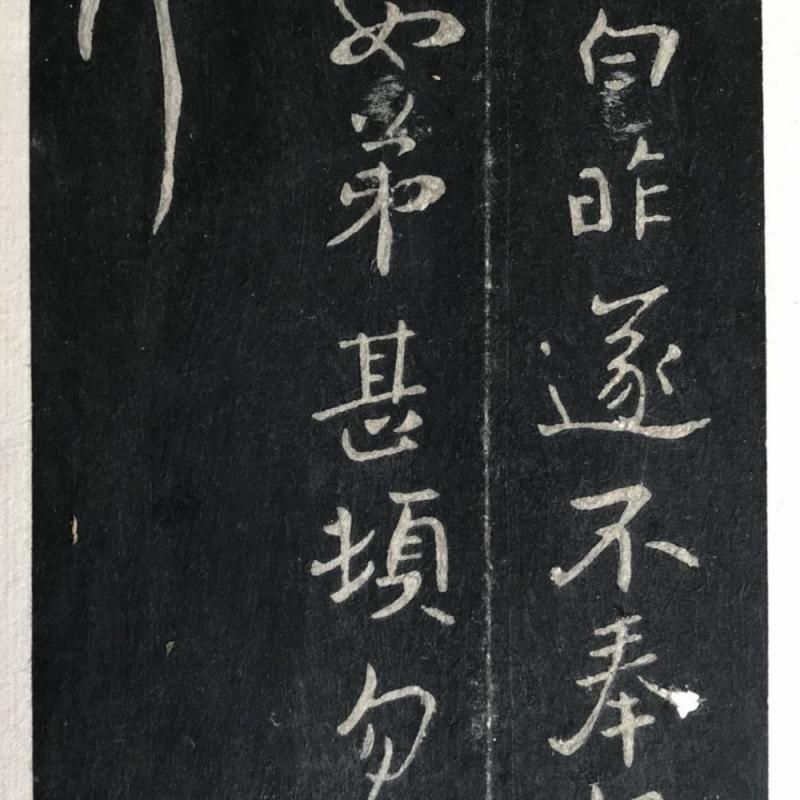 白昨遂不奉
如弟甚頓勿